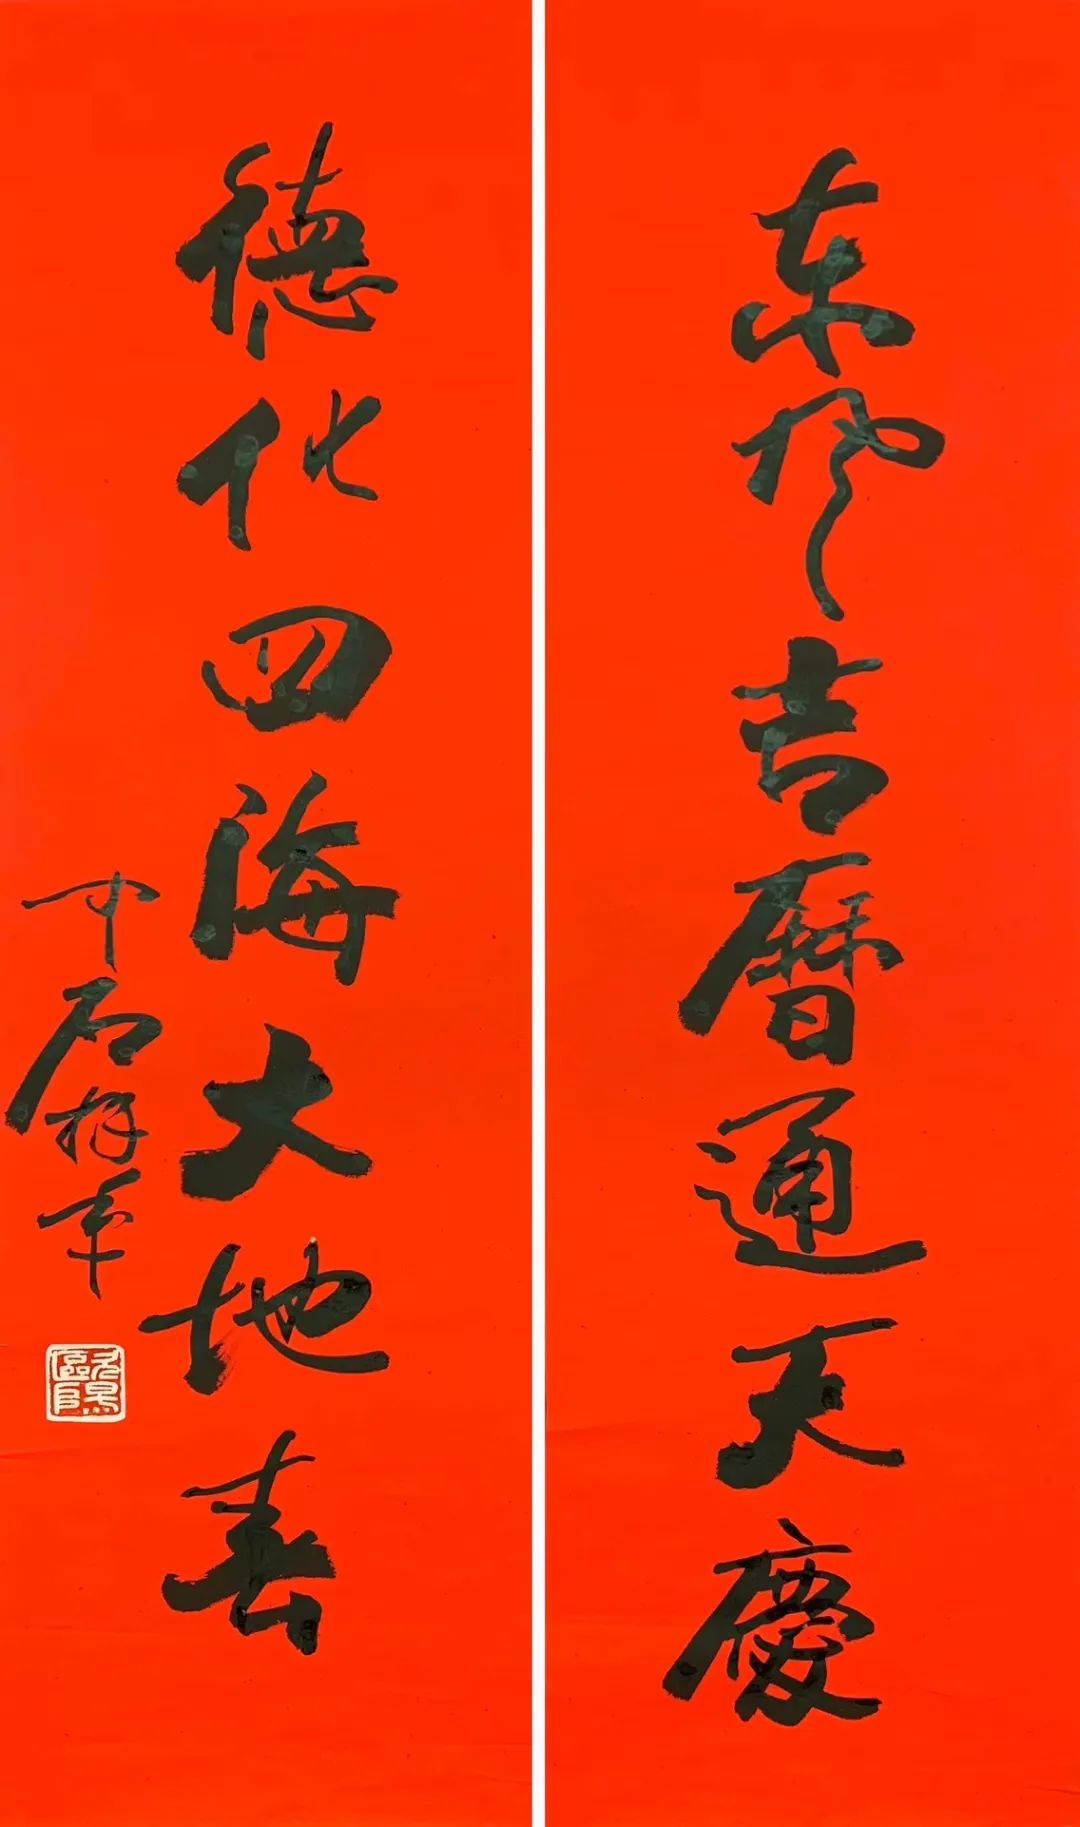 东风吉曆通天慶
德化四海大地春
中石拜年
歐陽